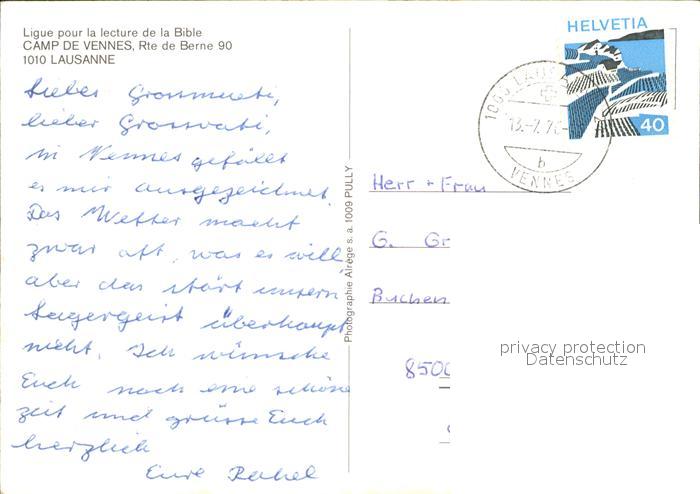 Ligue pour la lecture de la Bible
CAMP DE VENNES, Rte de Berne 90
1010 LAUSANNE
Liebes Grossmueti,
lieber Grossvati,
in Vennes gefällt
es mir ausgezeichnet.
Das Wetter macht
zwar oft, was es will,
aber das stört unsern
Lagergeist überhaupt
nicht. Ich wünsche
Euch noch eine schöne
Zeit und grüsse Euch
herzlich
Eure Rahel
Photographie Airège s.a. 1009 PULLY
HELVETIA
40
LAUS
13.-7.7
b
VENNES
Herr + Frau
G. Gr
Buchen
850
privacy protection
Datenschutz